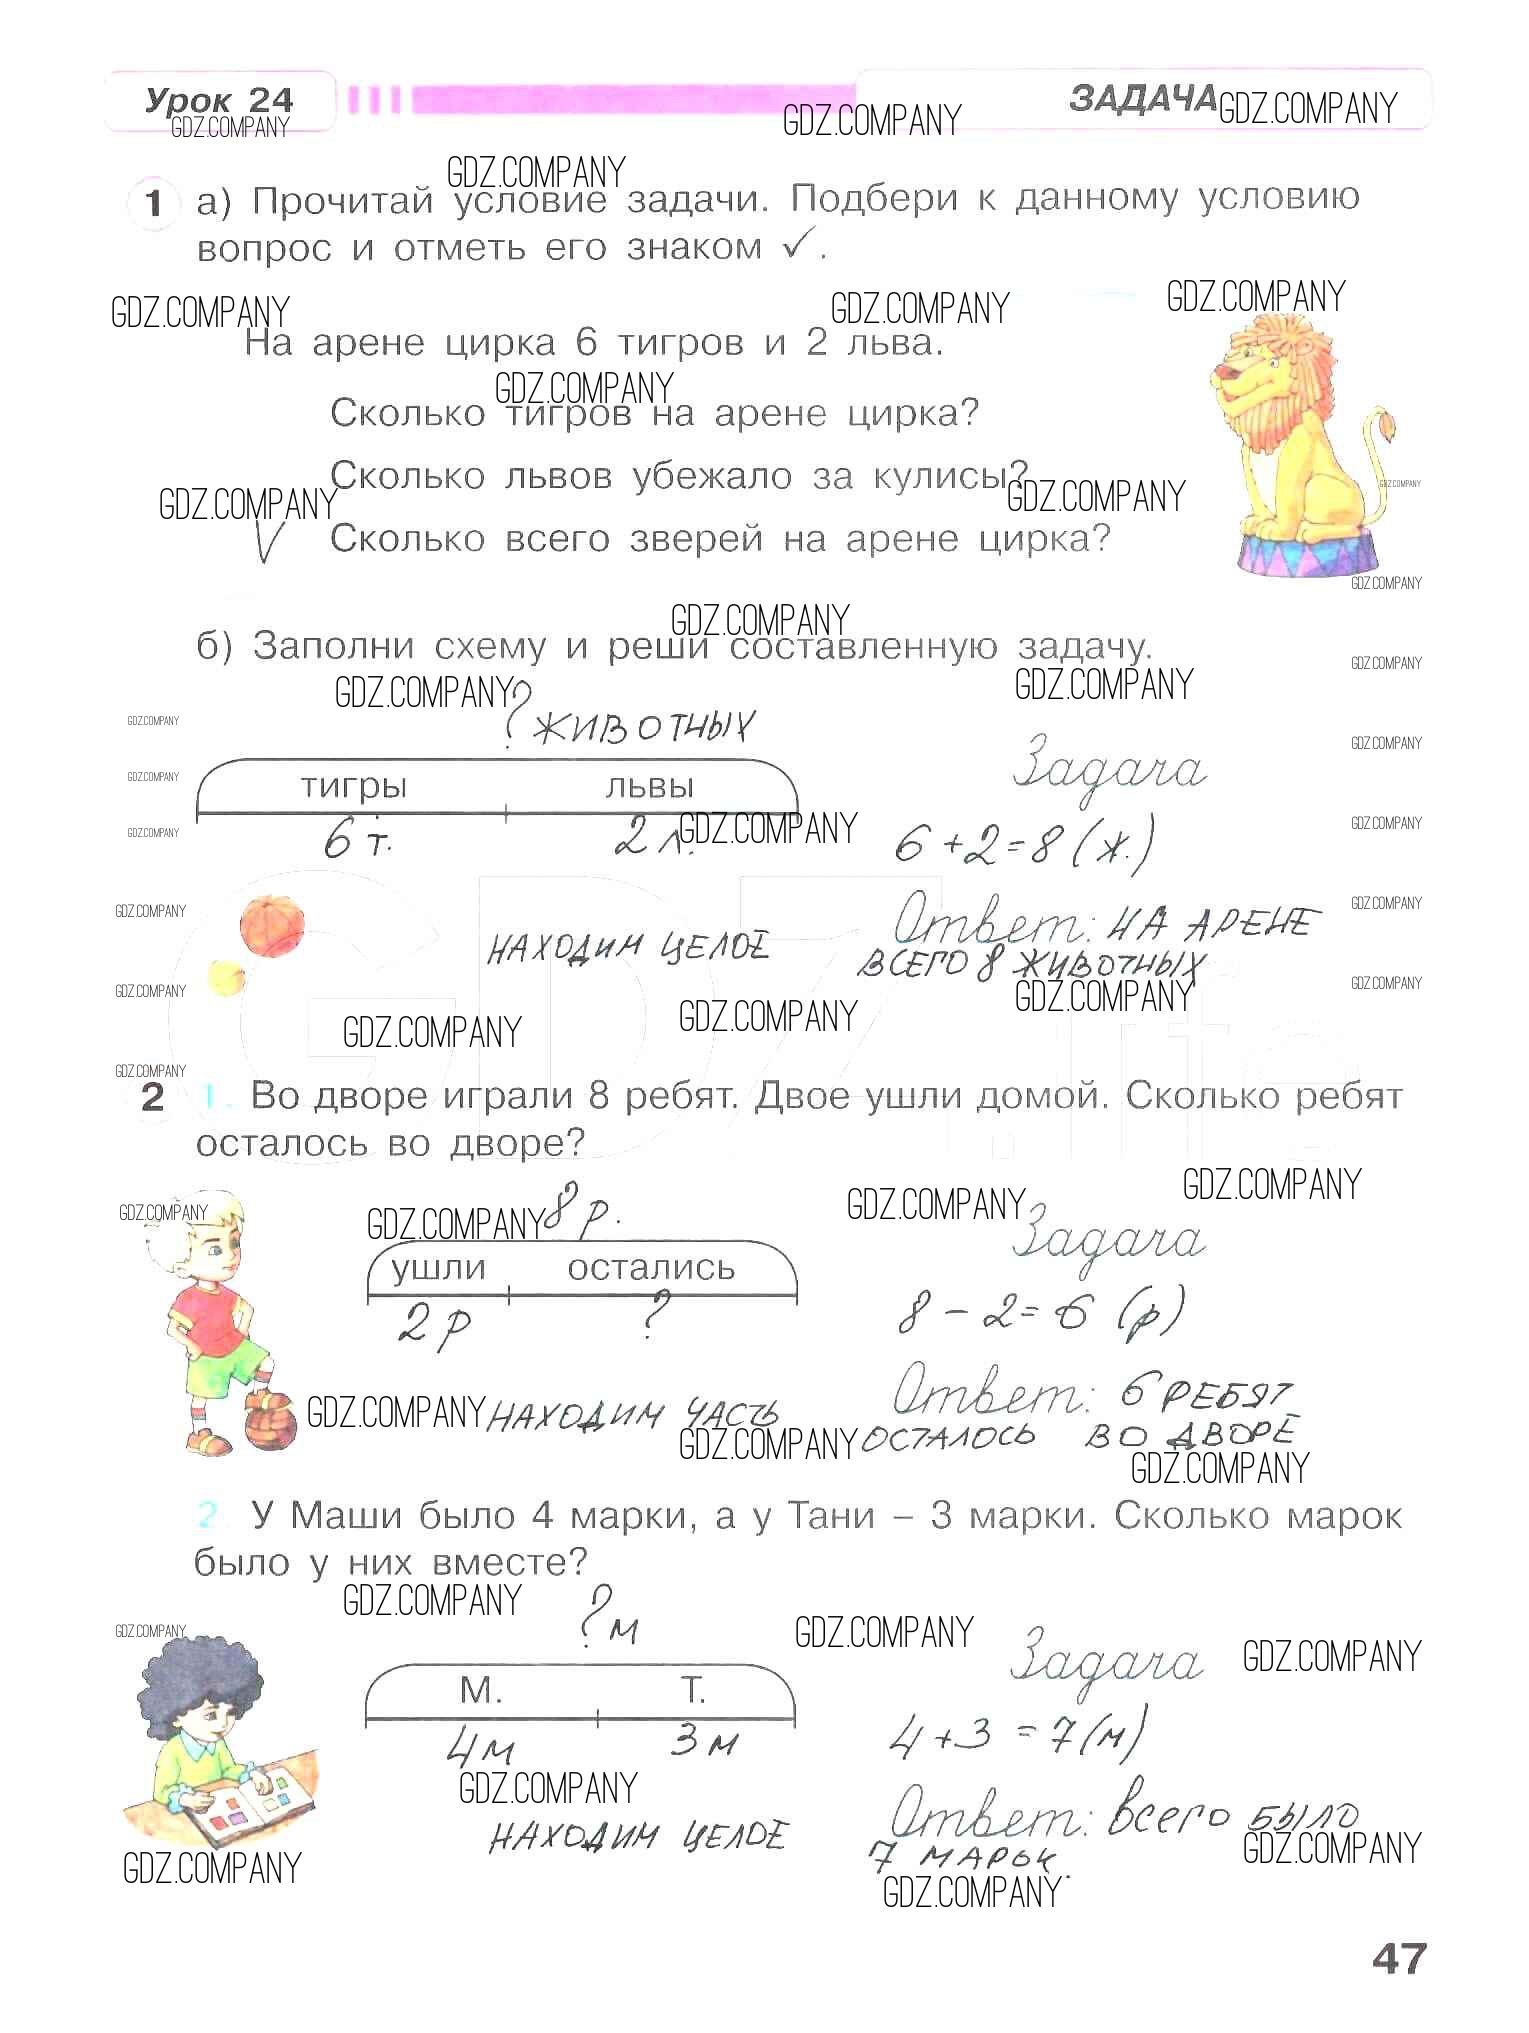 Урок 24
ЗАДАЧА GDZ.COMPANY
GDZ.COMPANY
GDZ.COMPANY
GDZ.COMPANY
1 а) Прочитай условие задачи. Подбери к данному условию
вопрос и отметь его знаком ✓.
GDZ.COMPANY
GDZ.COMPANY
GDZ.COMPANY
На арене цирка 6 тигров и 2 льва.
GDZ.COMPANY
Сколько тигров на арене цирка?
Сколько львов убежало за кулисы?
GDZ.COMPANY
GDZ.COMPANY
GDZ.COMPANY
V Сколько всего зверей на арене цирка?
GDZ.COMPANY
GDZ.COMPANY
б) Заполни схему и реши составленную задачу.
GDZ.COMPANY
GDZ.COMPANY
GDZ.COMPANY
GDZ.COMPANY
? ЖИВОТНЫХ
GDZ.COMPANY
Задача
тигры львы
GDZ.COMPANY
6 т. 2 л.
GDZ.COMPANY
GDZ.COMPANY
GDZ.COMPANY
6 + 2 = 8 (ж.)
GDZ.COMPANY
GDZ.COMPANY
Ответ: НА АРЕНЕ
НАХОДИМ ЦЕЛОЕ
ВСЕГО 8 ЖИВОТНЫХ
GDZ.COMPANY
GDZ.COMPANY
GDZ.COMPANY
GDZ.COMPANY
GDZ.COMPANY
GDZ.life
GDZ.COMPANY
2 1. Во дворе играли 8 ребят. Двое ушли домой. Сколько ребят
осталось во дворе?
GDZ.COMPANY
GDZ.COMPANY
GDZ.COMPANY
GDZ.COMPANY
8 р.
Задача
ушли остались
2 р ?
8 – 2 = 6 (р)
GDZ.COMPANY
НАХОДИМ ЧАСТЬ
Ответ: 6 РЕБЯТ
GDZ.COMPANY
ОСТАЛОСЬ ВО ДВОРЕ
GDZ.COMPANY
2. У Маши было 4 марки, а у Тани – 3 марки. Сколько марок
было у них вместе?
GDZ.COMPANY
? м
GDZ.COMPANY
GDZ.COMPANY
GDZ.COMPANY
Задача
М. Т.
4 м 3 м
4 + 3 = 7 (м)
GDZ.COMPANY
НАХОДИМ ЦЕЛОЕ
Ответ: Всего БЫЛО
7 МАРОК.
GDZ.COMPANY
GDZ.COMPANY
GDZ.COMPANY
47